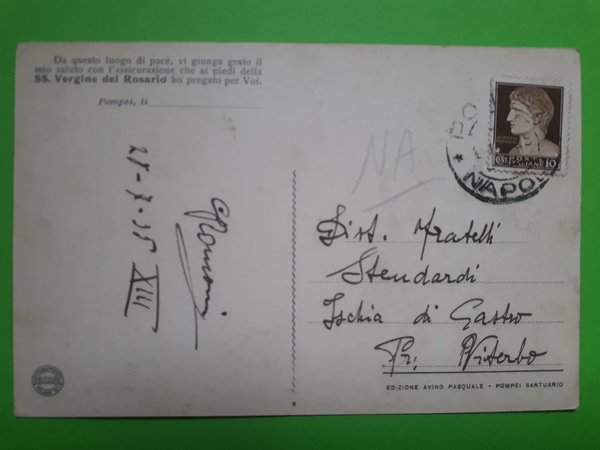 Da questo luogo di pace, vi giunga grato il
mio saluto con l'assicurazione che ai piedi della
SS. Vergine del Rosario ho pregato per Voi.
Pompei, li
28-7-35 XIII
NA
NAPOLI
POSTE ITALIANE
10
Dist. Fratelli
Stendardi
Ischia di Castro
Pr. Viterbo
EDIZIONE AVINO PASQUALE - POMPEI SANTUARIO